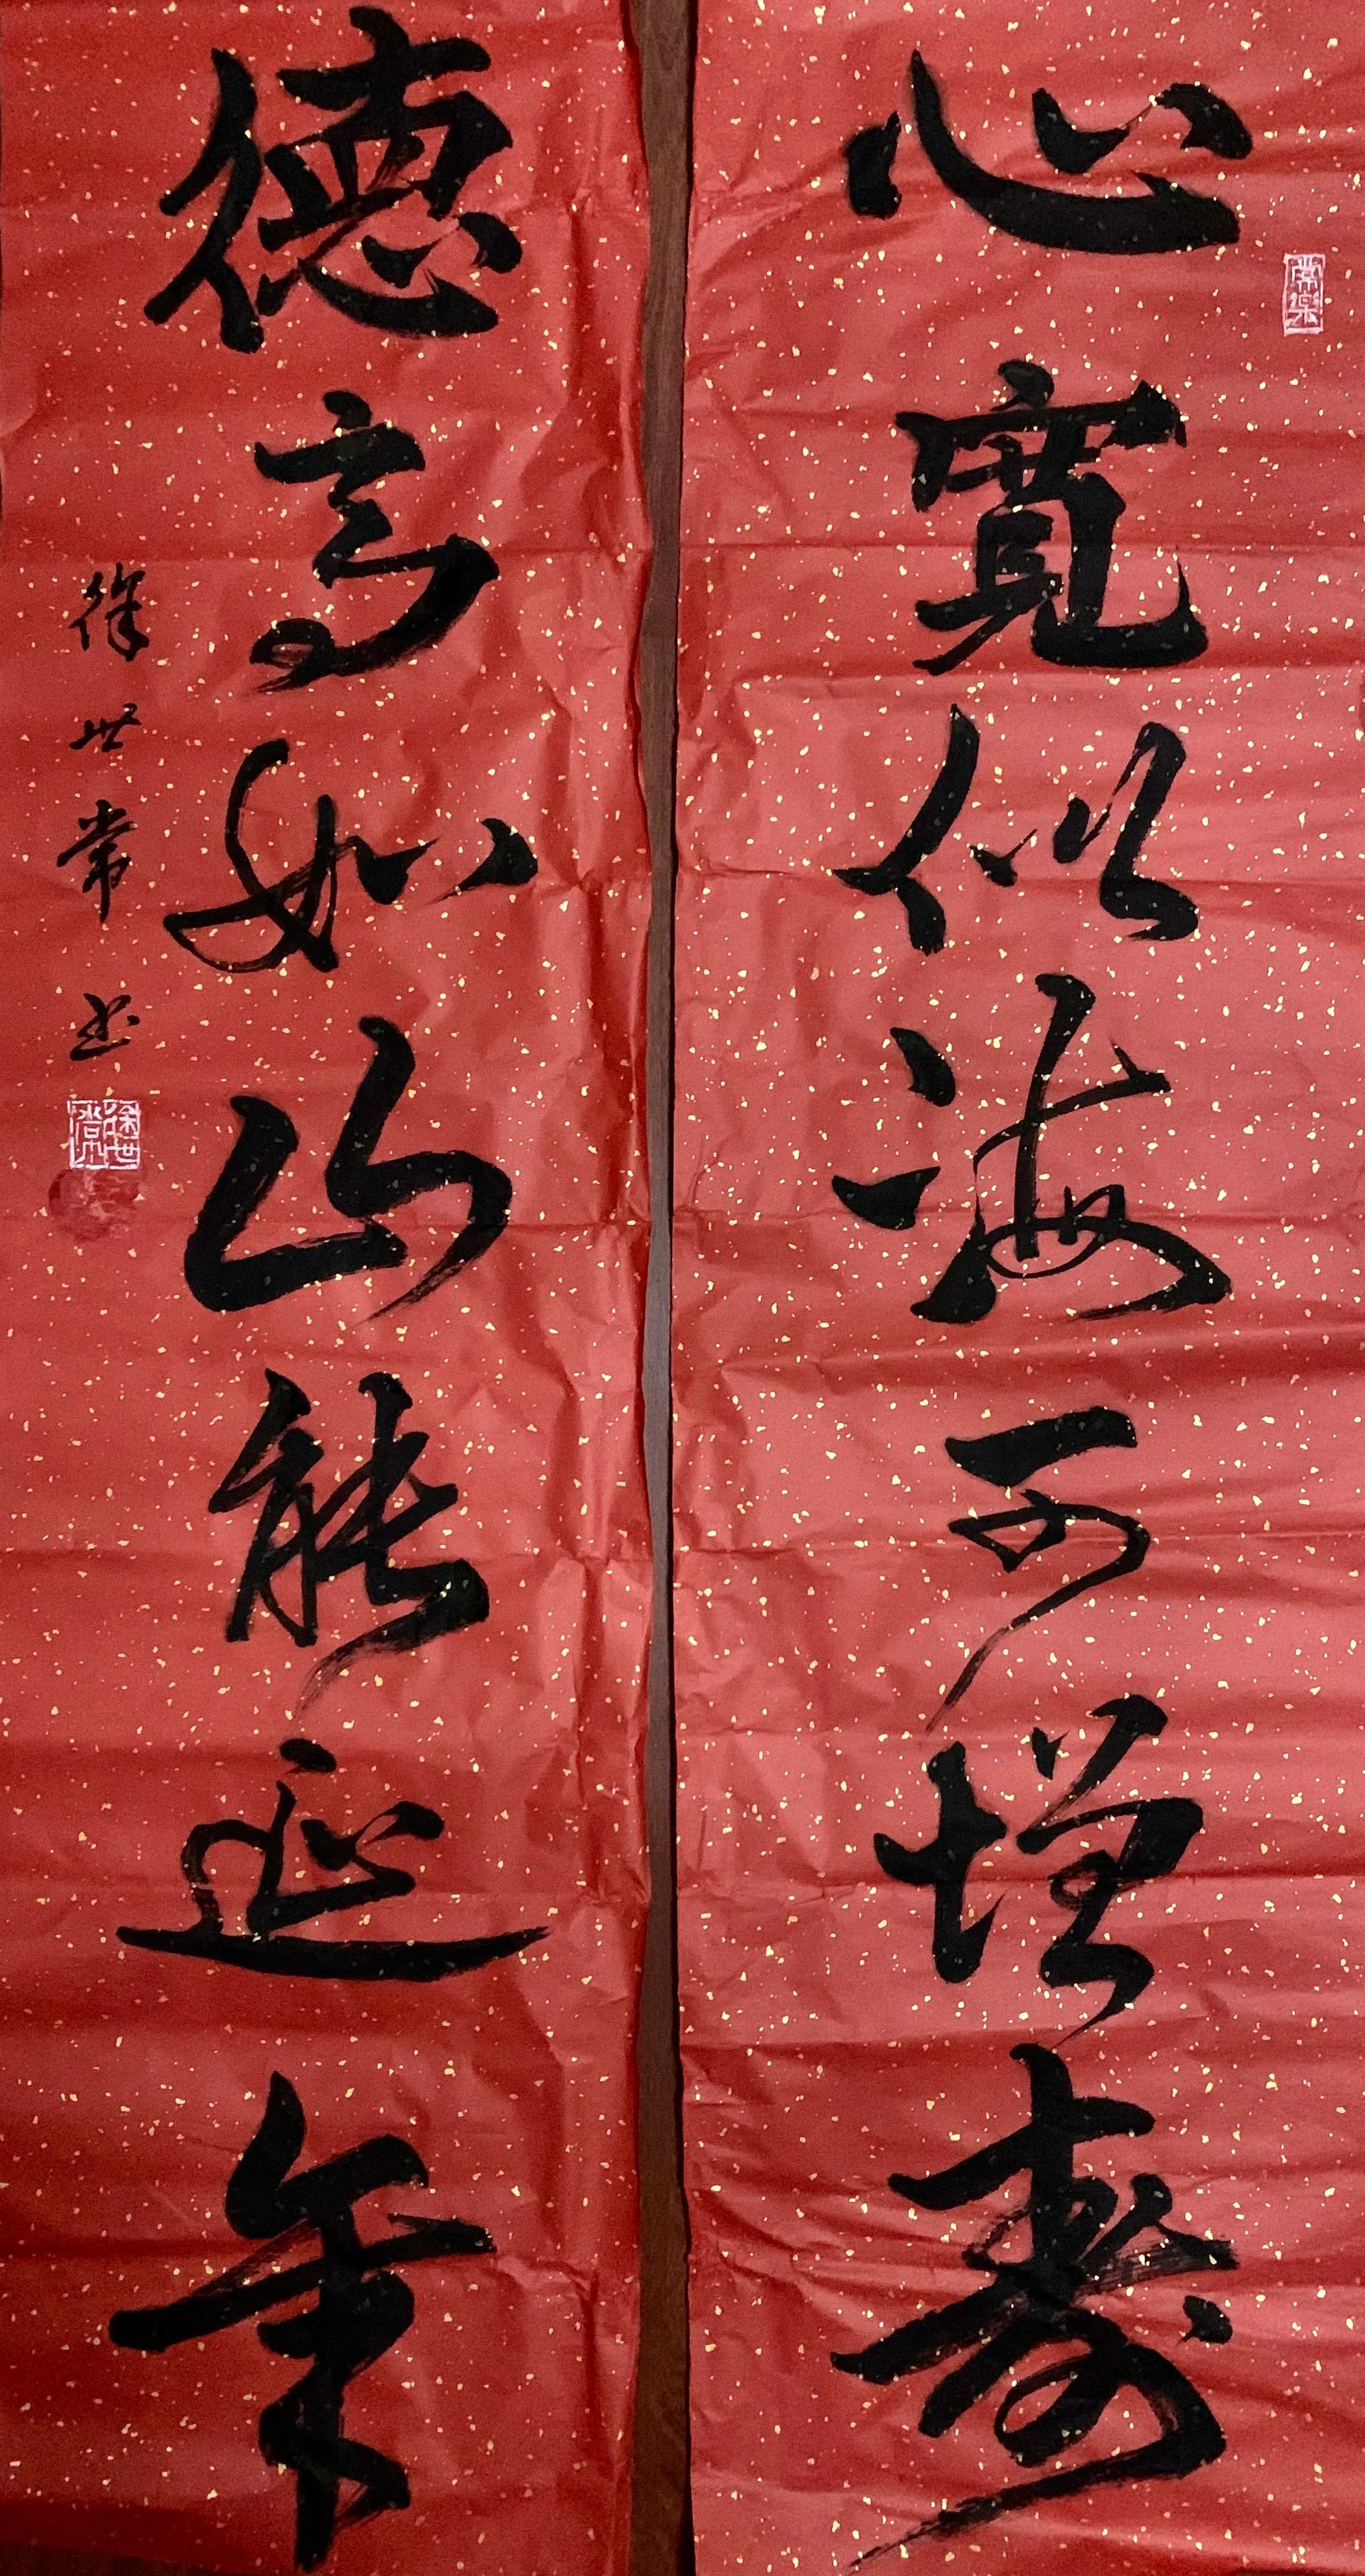 心寬似海可增壽
常樂
德高如山能延年
徐世常书
徐世常